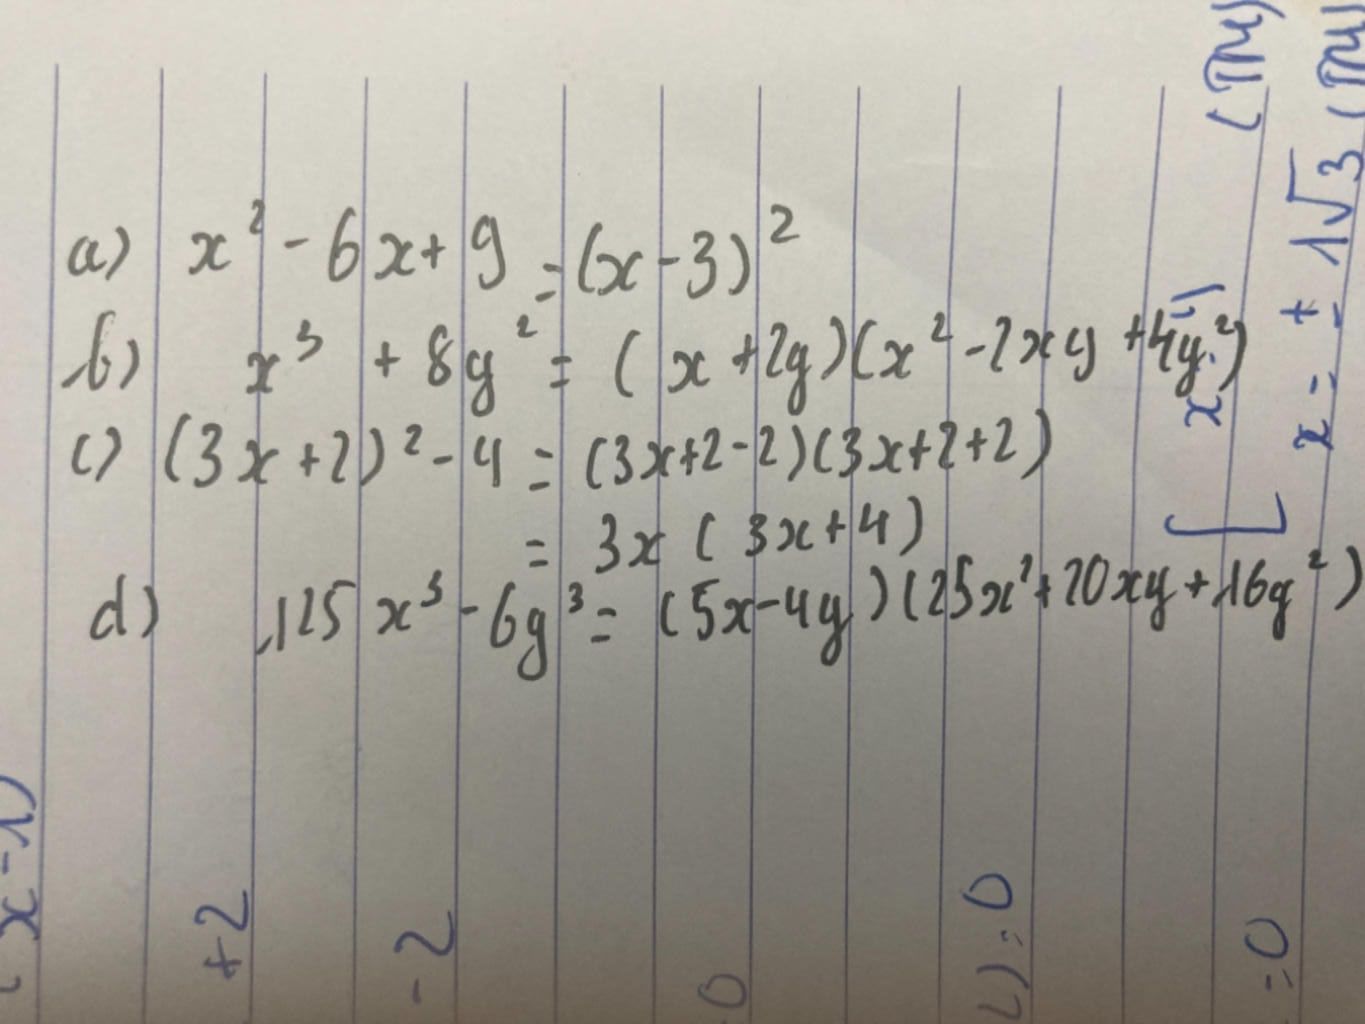 a) x² - 6x + 9 = (x - 3)²
b) x³ + 8y² = (x + 2y)(x² - 2xy + 4y²)
c) (3x + 2)² - 4 = (3x + 2 - 2)(3x + 2 + 2)
= 3x (3x + 4)
d) 125x³ - 6y³ = (5x - 4y)(25x² + 20xy + 16y²)
(TM)
x = ± 1√3 (TM)
x
x - 1)
+2
- 2
0
) = 0
= 0